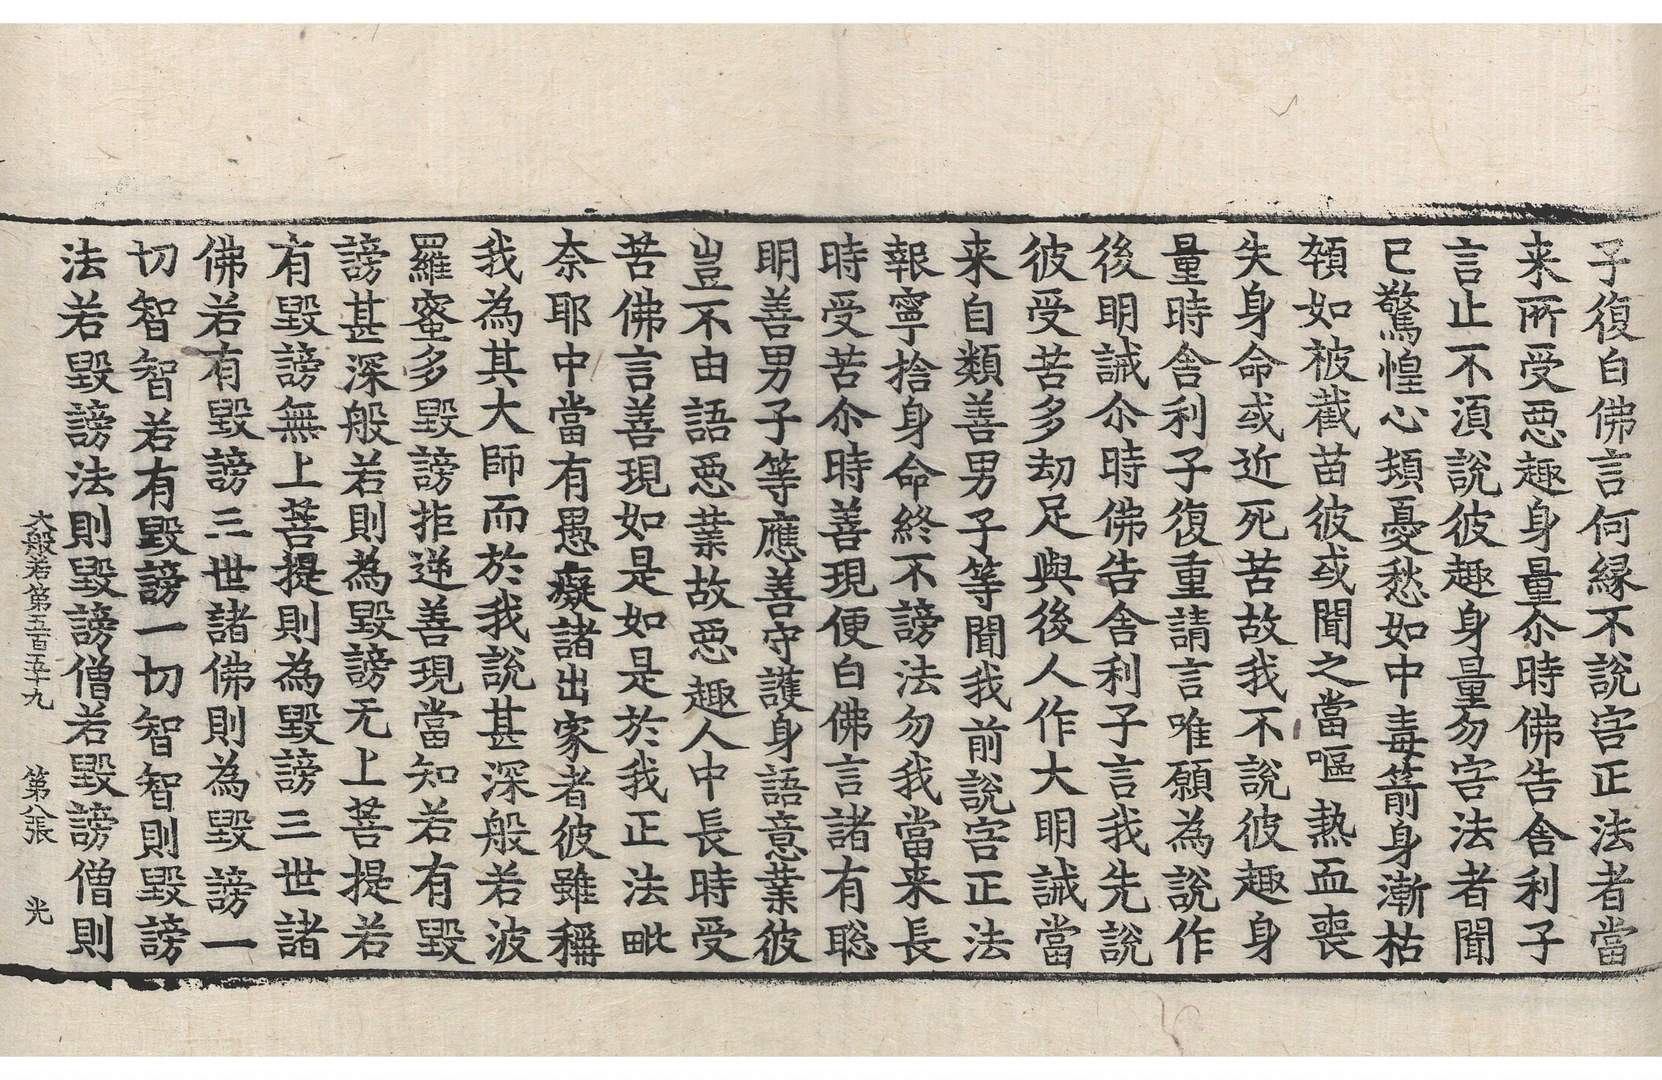 子復白佛言何緣不說害正法者當
来所受惡趣身量尒時佛告舍利子
言止不湏說彼趣身量勿害法者聞
已驚惶心頬憂愁如中毒箭身漸枯
頓如被截苗彼或聞之當嘔熱血喪
失身命或近死苦故我不說彼趣身
量時舍利子復重請言唯願為說作
後明誡尒時佛告舍利子言我先說
彼受苦多劫足與後人作大明誡當
来自類善男子等聞我前說害正法
報寧捨身命終不謗法勿我當来長
時受苦尒時善現便白佛言諸有聡
明善男子等應善守護身語意業彼
豈不由語惡業故惡趣人中長時受
苦佛言善現如是如是於我正法毗
奈耶中當有愚癡諸出家者彼雖稱
我為其大師而於我說甚深般若波
羅蜜多毀謗拒逆善現當知若有毀
謗甚深般若則為毀謗无上菩提若
有毀謗無上菩提則為毀謗三世諸
佛若有毀謗三世諸佛則為毀謗一
切智智若有毀謗一切智智則毀謗
法若毀謗法則毀謗僧若毀謗僧則
大般若第五百五十九 第八張 光